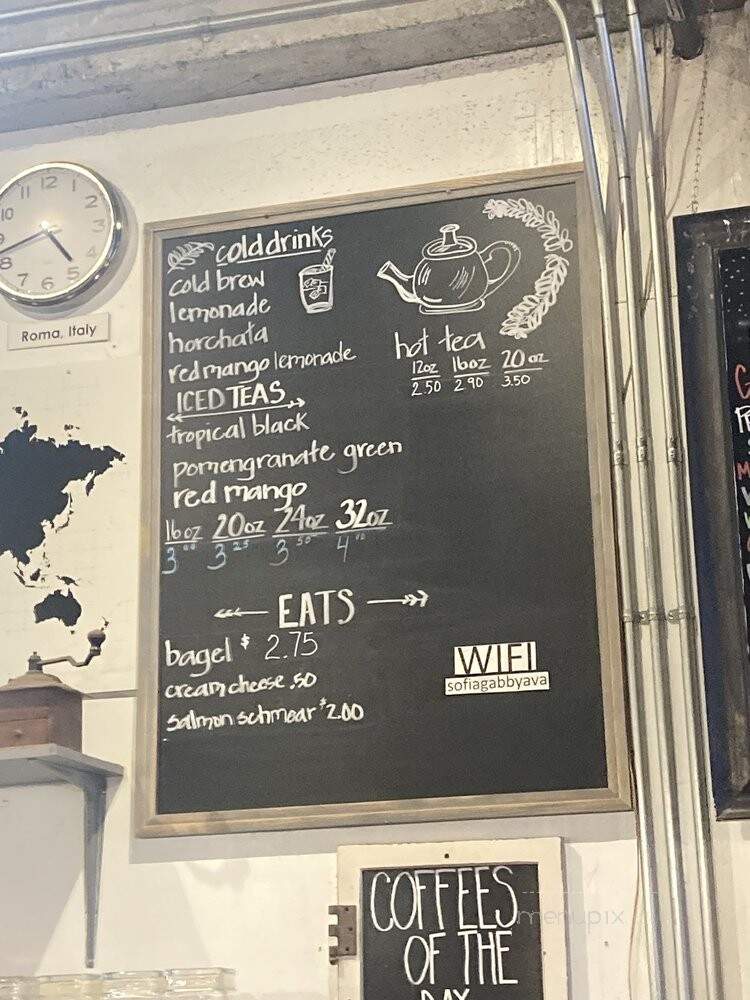 12
1
2
3
4
5
6
7
8
9
10
11
Roma, Italy
cold drinks
cold brew
lemonade
horchata
red mango lemonade
ICED TEAS
tropical black
pomengranate green
red mango
16oz 20oz 24oz 32oz
3 00 3 25 3 50 4 00
hot tea
12oz 16oz 20oz
2.50 2.90 3.50
EATS
bagel $ 2.75
cream cheese .50
salmon schmear $2.00
WIFI
sofiagabbyava
COFFEES
OF THE
DAY
menupix